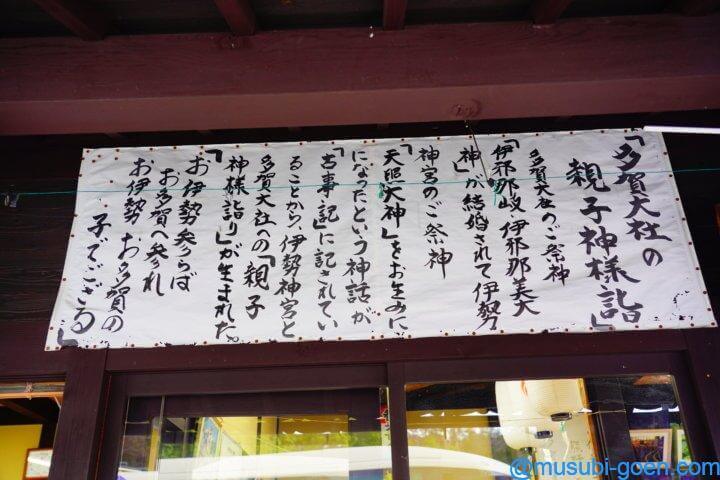 「多賀大社の
親子神様詣」
多賀大社のご祭神
「伊邪那岐・伊邪那美大
神」が結婚されて伊勢
神宮のご祭神
「天照大神」をお生みに
になったという神話が
「古事記」に記されてい
ることから、伊勢神宮と
多賀大社への「親子
神様詣り」が生まれた。
「お伊勢参らば
お多賀へ参れ
お伊勢お多賀の
子でござる」
@musubi-goen.com